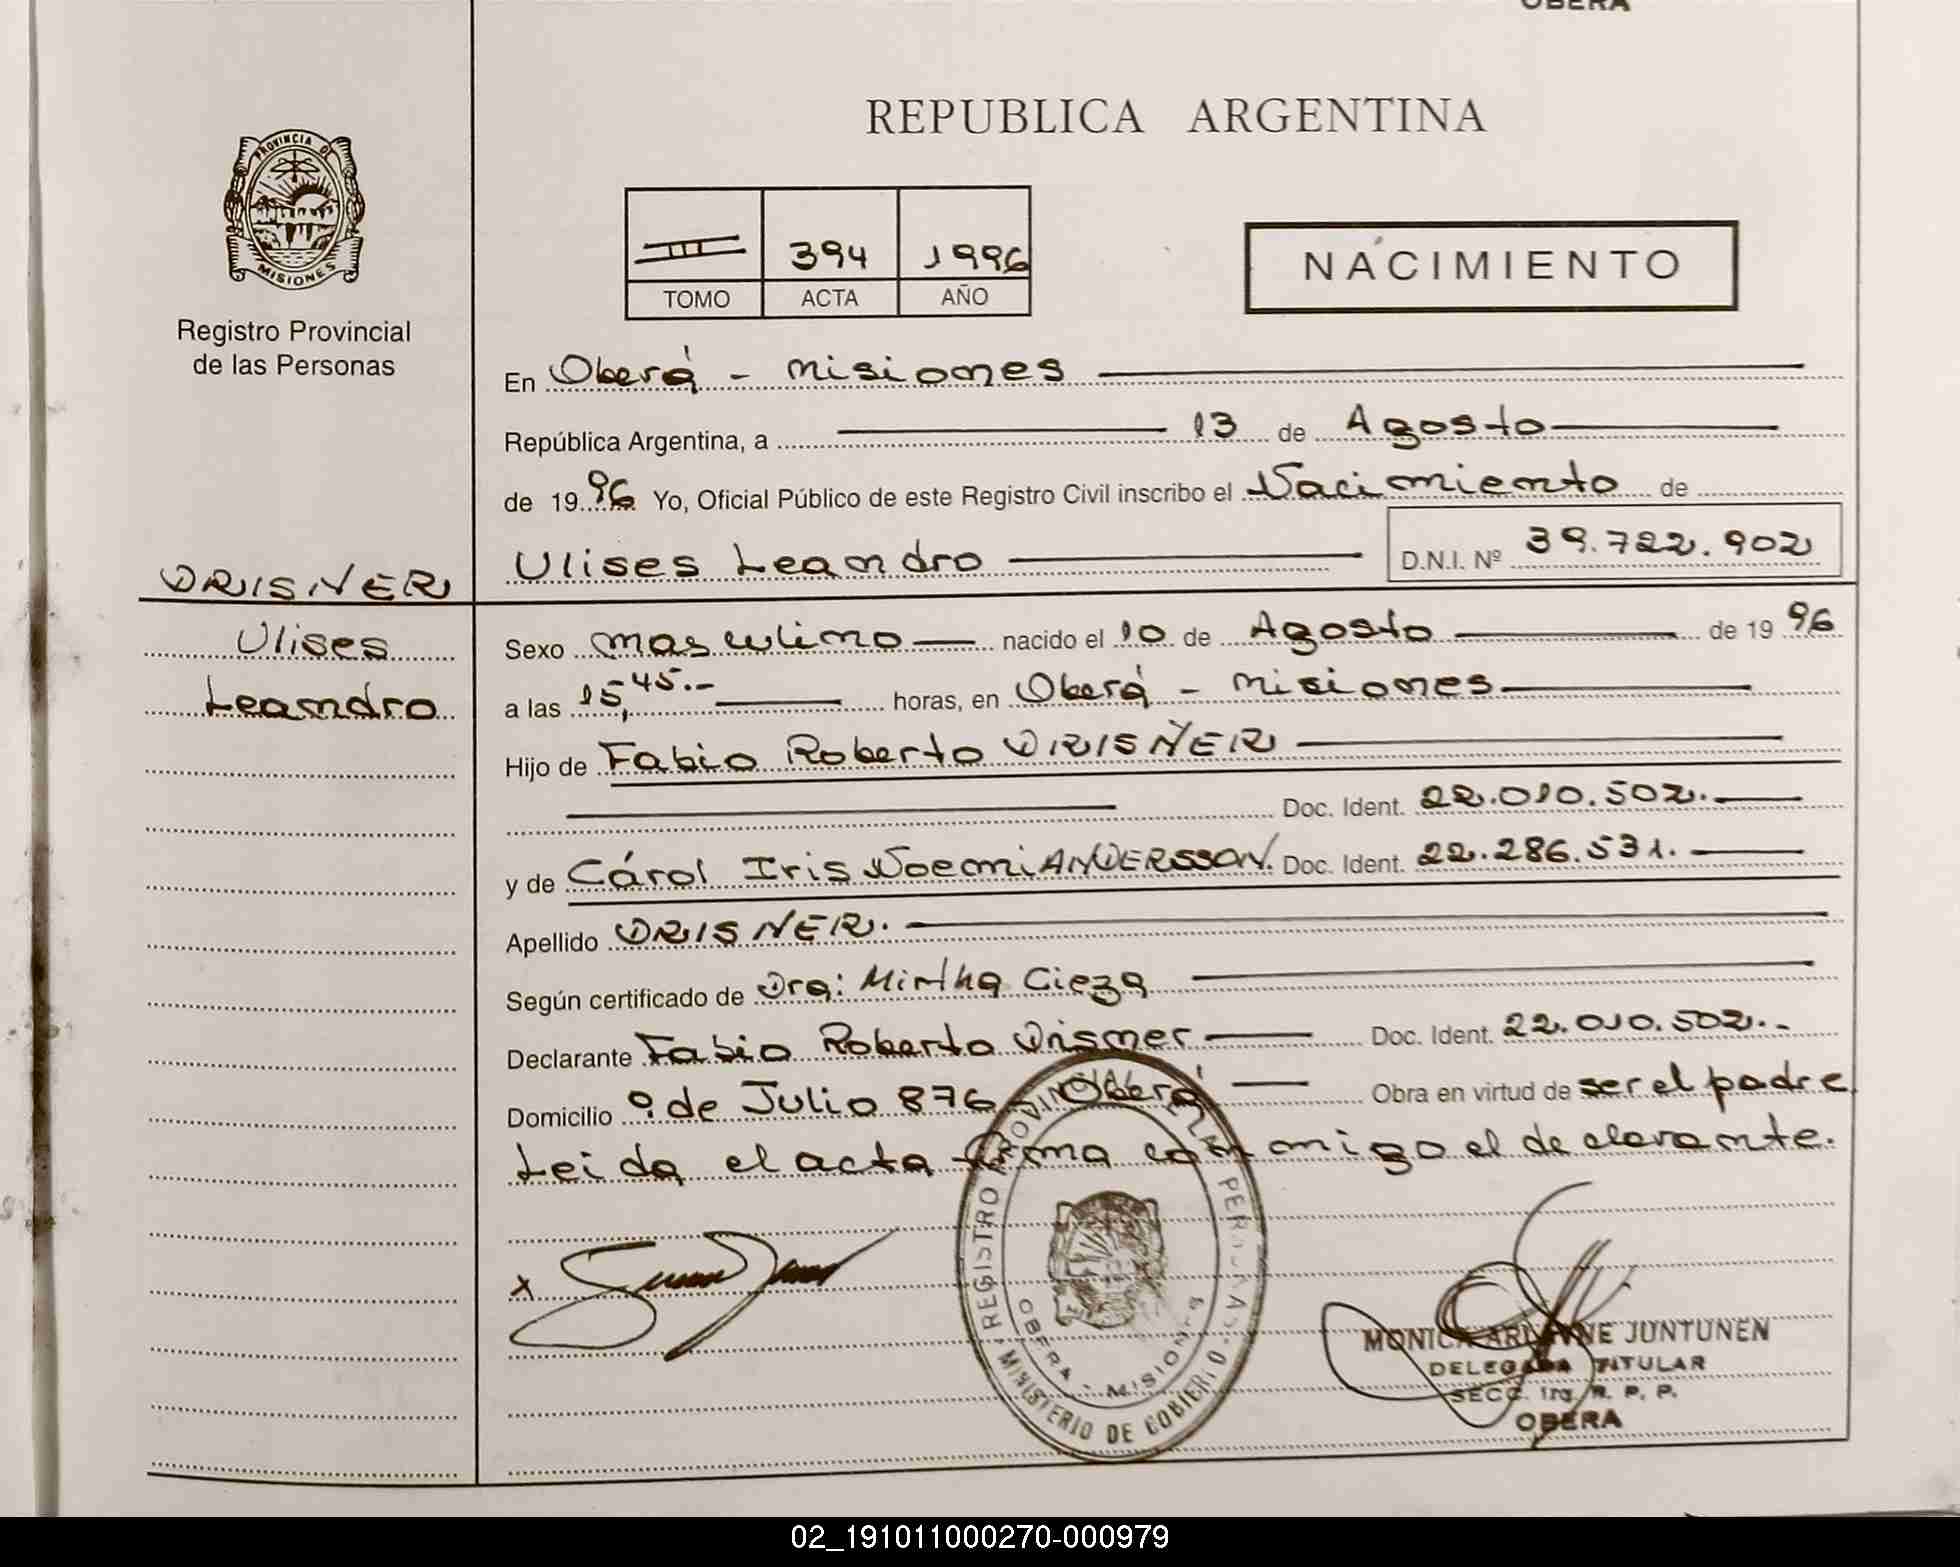 OBERA
PROVINCIA DE
MISIONES
Registro Provincial
de las Personas
REPUBLICA ARGENTINA
III 394 1996
TOMO ACTA AÑO
NACIMIENTO
En Oberá - Misiones
República Argentina, a 13 de Agosto
de 1996 Yo, Oficial Público de este Registro Civil inscribo el Nacimiento de
Ulises Leandro D.N.I. Nº 39.722.902
DRISNER
Ulises
Leandro
Sexo masculino nacido el 10 de Agosto de 1996
a las 15,45.- horas, en Oberá - Misiones
Hijo de Fabio Roberto DRISNER
Doc. Ident. 22.010.502.
y de Cárol Iris Noemi ANDERSSON. Doc. Ident. 22.286.531.
Apellido DRISNER.
Según certificado de Dra: Mirtha Cieza
Declarante Fabio Roberto Drisner Doc. Ident. 22.010.502.-
Domicilio 9 de Julio 876 - Oberá Obra en virtud de ser el padre
Leida el acta firma conmigo el declarante.
x
REGISTRO PROVINCIAL DE LAS PERSONAS
OBERA - MISIONES
MINISTERIO DE GOBIERNO
MONICA ARLEYNE JUNTUNEN
DELEGADA TITULAR
SECC. 1ra. R. P. P.
OBERA
02_191011000270-000979